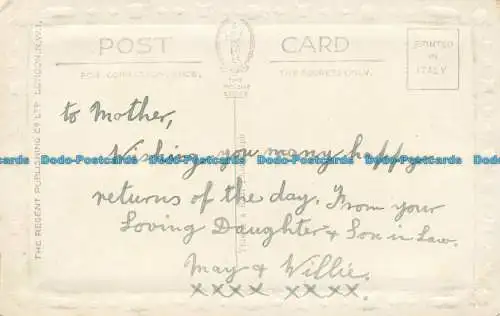 POST CARD
FOR CORRESPONDENCE. THE ADDRESS ONLY.
THE REGENT SERIES
PRINTED IN ITALY
THE REGENT PUBLISHING Co LTD LONDON, N.W.1.
to Mother,
Wishing you many happy
Dodo-Postcards Dodo-Postcards Dodo-Postcards Dodo-Postcards Dodo-Postcards
returns of the day. From your
Loving Daughter & Son in Law.
May & Willie.
xxxx xxxx.